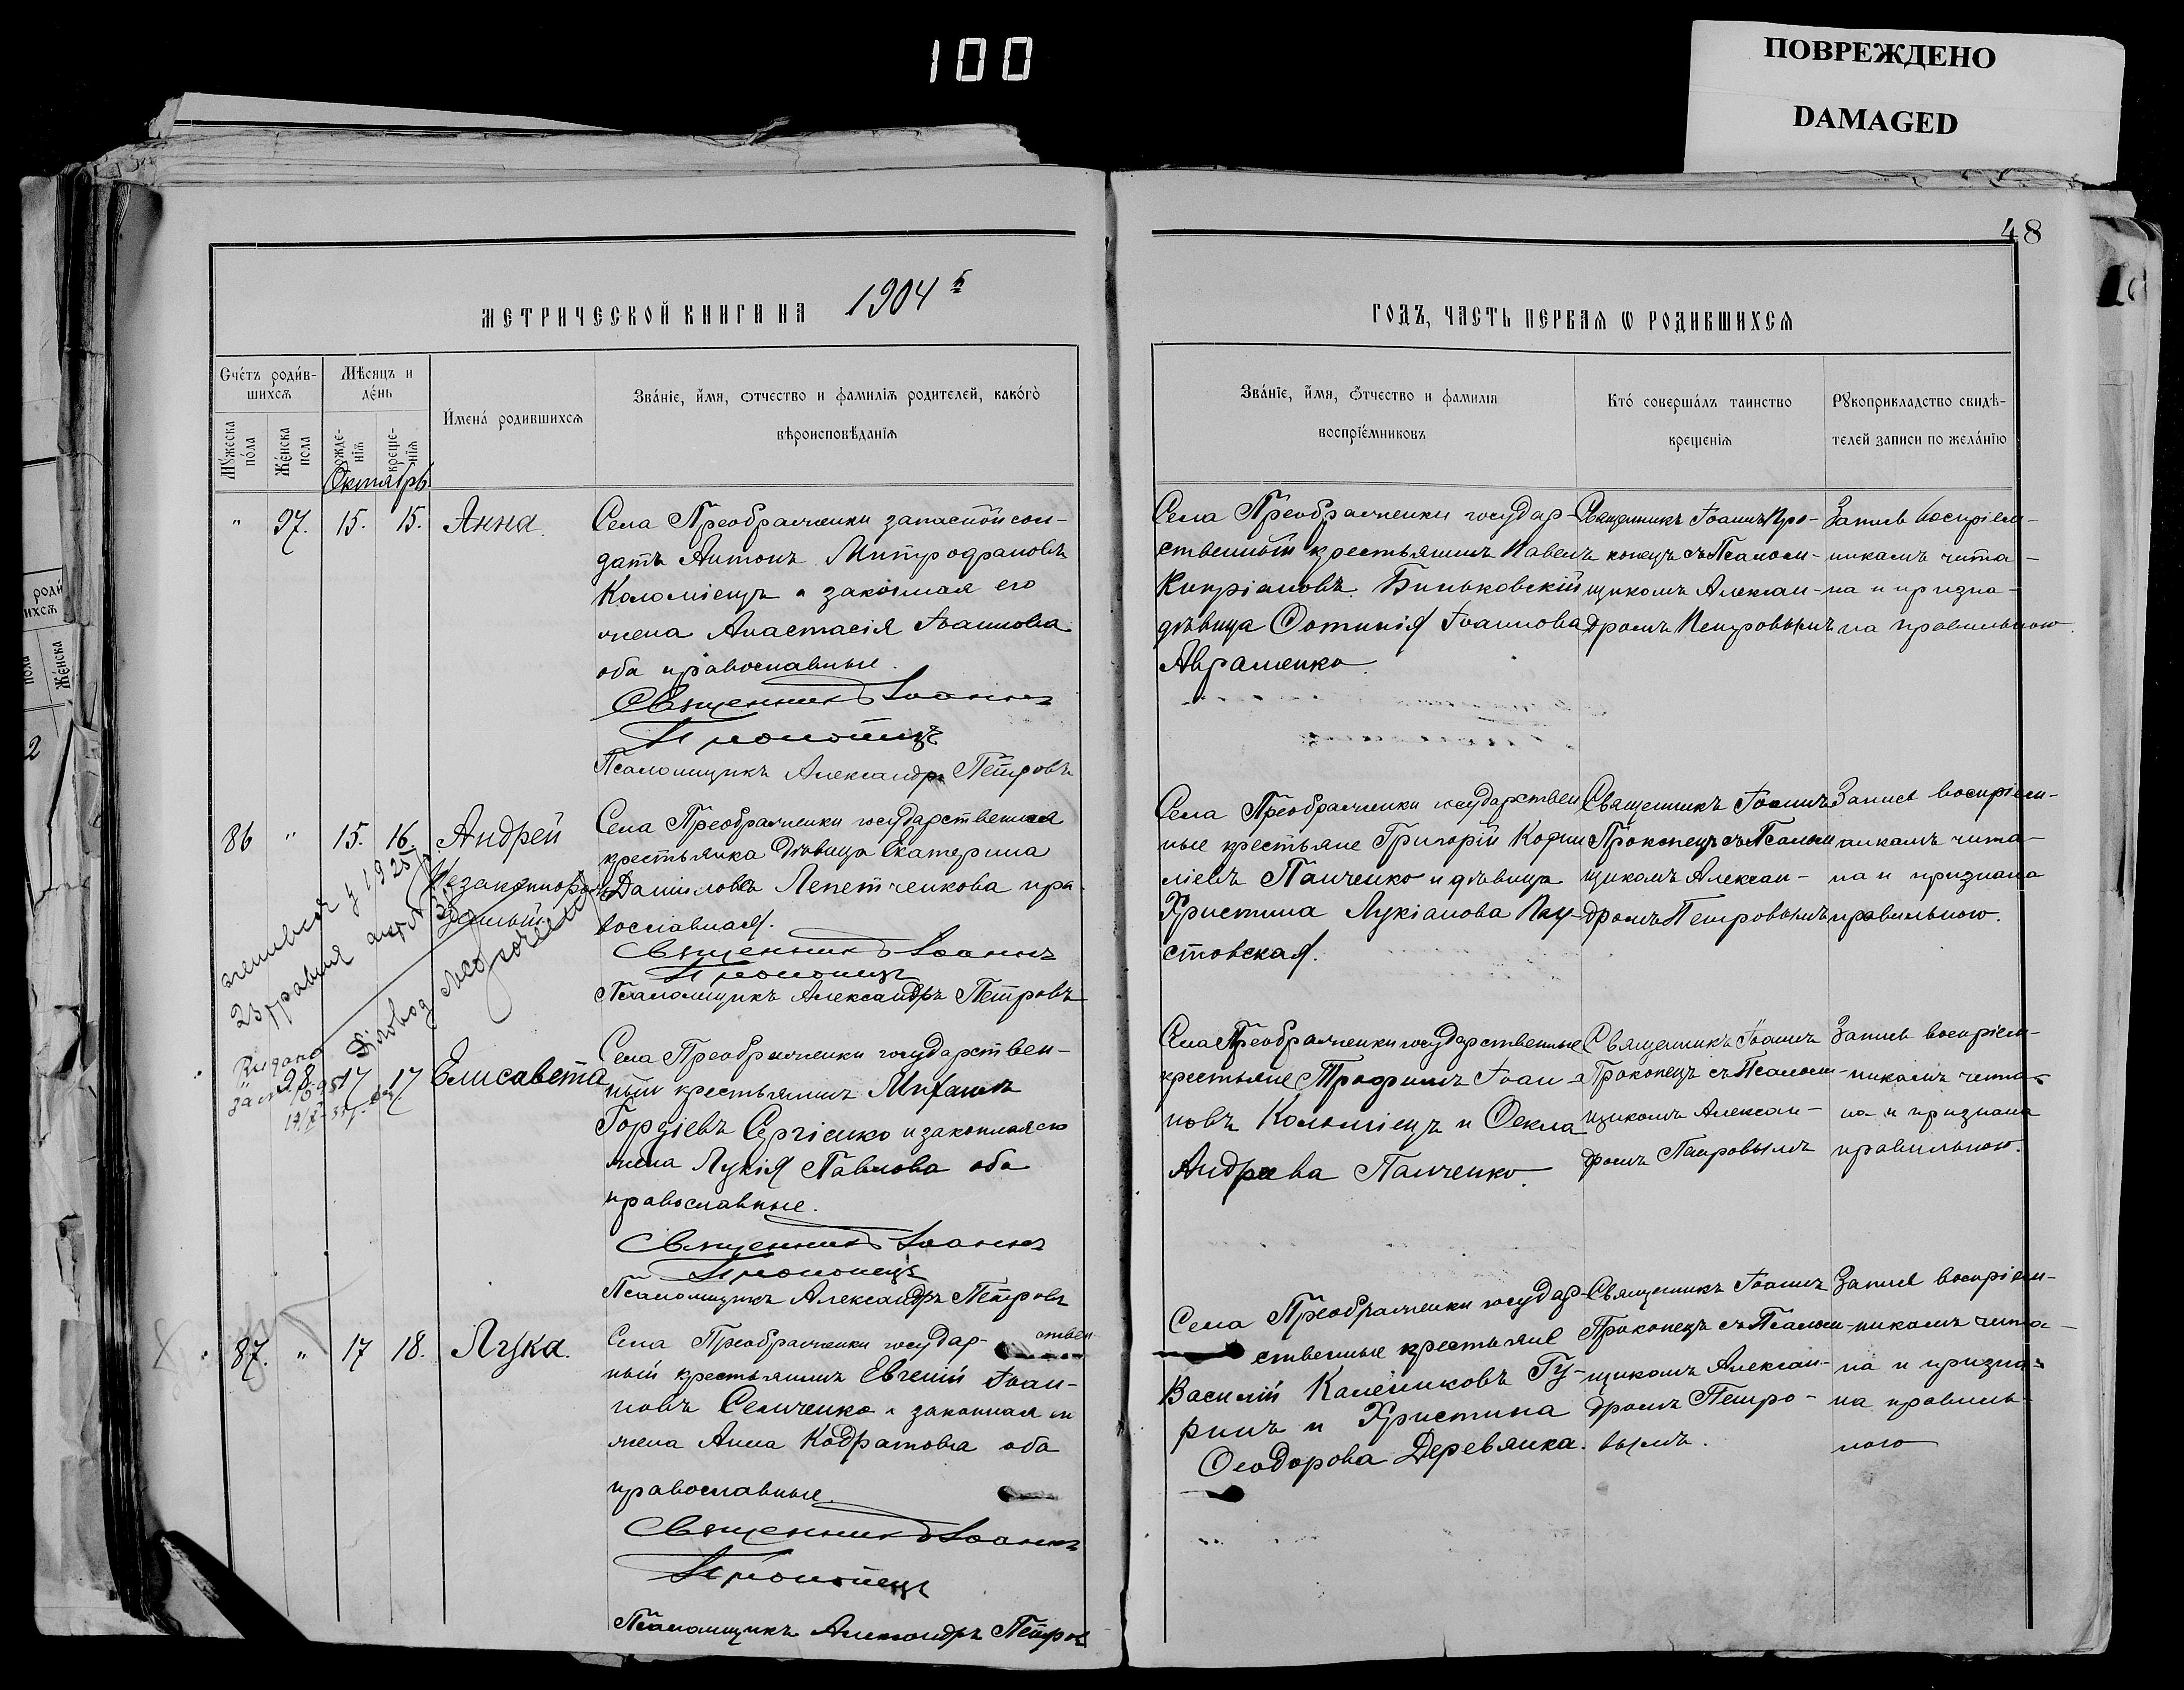 100
ПОВРЕЖДЕНО
DAMAGED
48
МЕТРИЧЕСКОЙ КНИГИ НА 1904 й
ГОДЪ, ЧАСТЬ ПЕРВАЯ Ѡ РОДИВШИХСЯ
Счетъ родив-
шихся
Мѣсяцъ и
день
Мужеска пола
Женска пола
рожде-
нія
креще-
нія
Имена родившихся
Званіе, имя, отчество и фамилія родителей, какого
вѣроисповѣданія
Званіе, имя, отчество и фамилія
воспріемниковъ
Кто совершалъ таинство
крещенія
Рукоприкладство свидѣ-
телей записи по желанію
Октябрь
" 97. 15. 15. Анна.
Села Преображенки запасной сол-
датъ Антонъ Митрофановъ
Коломіецъ и законная его
жена Анастасія Іоаннова
оба православные.
Священникъ Іоаннъ
Прокопецъ
Псаломщикъ Александръ Петровъ
Села Преображенки государ-
ственный крестьянинъ Павелъ
Кипріановъ Биньковскій
дѣвица Фотинія Іоаннова
Авраменко.
Священникъ Іоаннъ Про-
копецъ съ Псалом-
щикомъ Алексан-
дромъ Петровымъ
Запись воспріем-
никамъ чита-
на и призна-
на правильною.
86 " 15. 16. Андрей
Незаконнорож-
денный
Села Преображенки государственная
крестьянка дѣвица Екатерина
Даніилова Лепетченкова пра-
вославная.
Священникъ Іоаннъ
Прокопецъ
Псаломщикъ Александръ Петровъ
Села Преображенки государствен
ные крестьяне Григорій Корни
ліевъ Панченко и дѣвица
Христина Лукіанова Пау-
стовская.
Священникъ Іоаннъ
Прокопецъ съ Псалом
щикомъ Алексан-
дромъ Петровымъ
Запись воспріем-
никамъ чита-
на и признана
правильною.
1925
98 17 17 Елисавета
Села Преображенки государствен-
ный крестьянинъ Михаилъ
Гордіевъ Сергіенко и законная его
жена Лукія Павлова оба
православные.
Священникъ Іоаннъ
Прокопецъ
Псаломщикъ Александръ Петровъ
Села Преображенки государственные
крестьяне Трофимъ Іоан-
новъ Коломіецъ и Фекла
Андреева Панченко.
Священникъ Іоаннъ
Прокопецъ съ Псалом-
щикомъ Алексан-
дромъ Петровымъ
Запись воспріем-
никамъ чита-
на и признана
правильною.
87. " 17 18. Лука.
Села Преображенки государ- ствен
ный крестьянинъ Евгеній Іоан-
новъ Семченко и законная его
жена Анна Кодратова оба
православные.
Священникъ Іоаннъ
Прокопецъ
Псаломщикъ Александръ Петровъ
Села Преображенки государ-
ственные крестьяне
Василій Калениковъ Гу-
ринъ и Христина
Феодорова Деревянка.
Священникъ Іоаннъ
Прокопецъ съ Псалом-
щикомъ Алексан-
дромъ Петро-
вымъ.
Запись воспріем-
никамъ чита-
на и призна-
на правиль-
ною